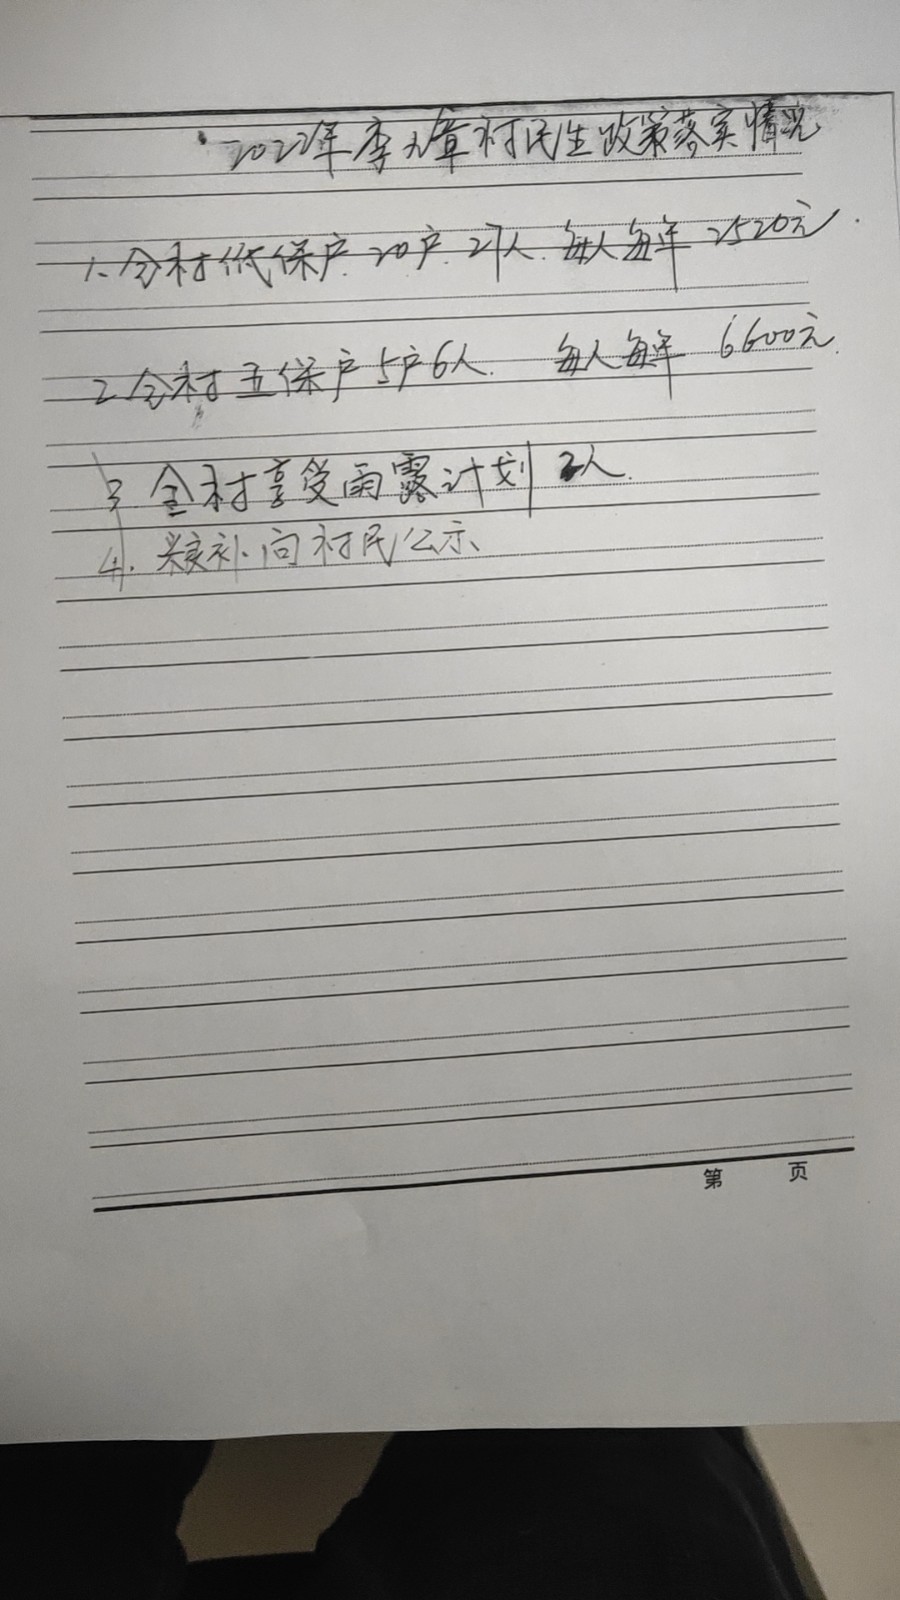 2022年李九章村民生政策落实情况
1、全村低保户.20户.27人.每人每年2520元.
2.全村五保户5户6人. 每人每年 6600元.
3 全村享受雨露计划2人.
4.补.向村民公示
第 页